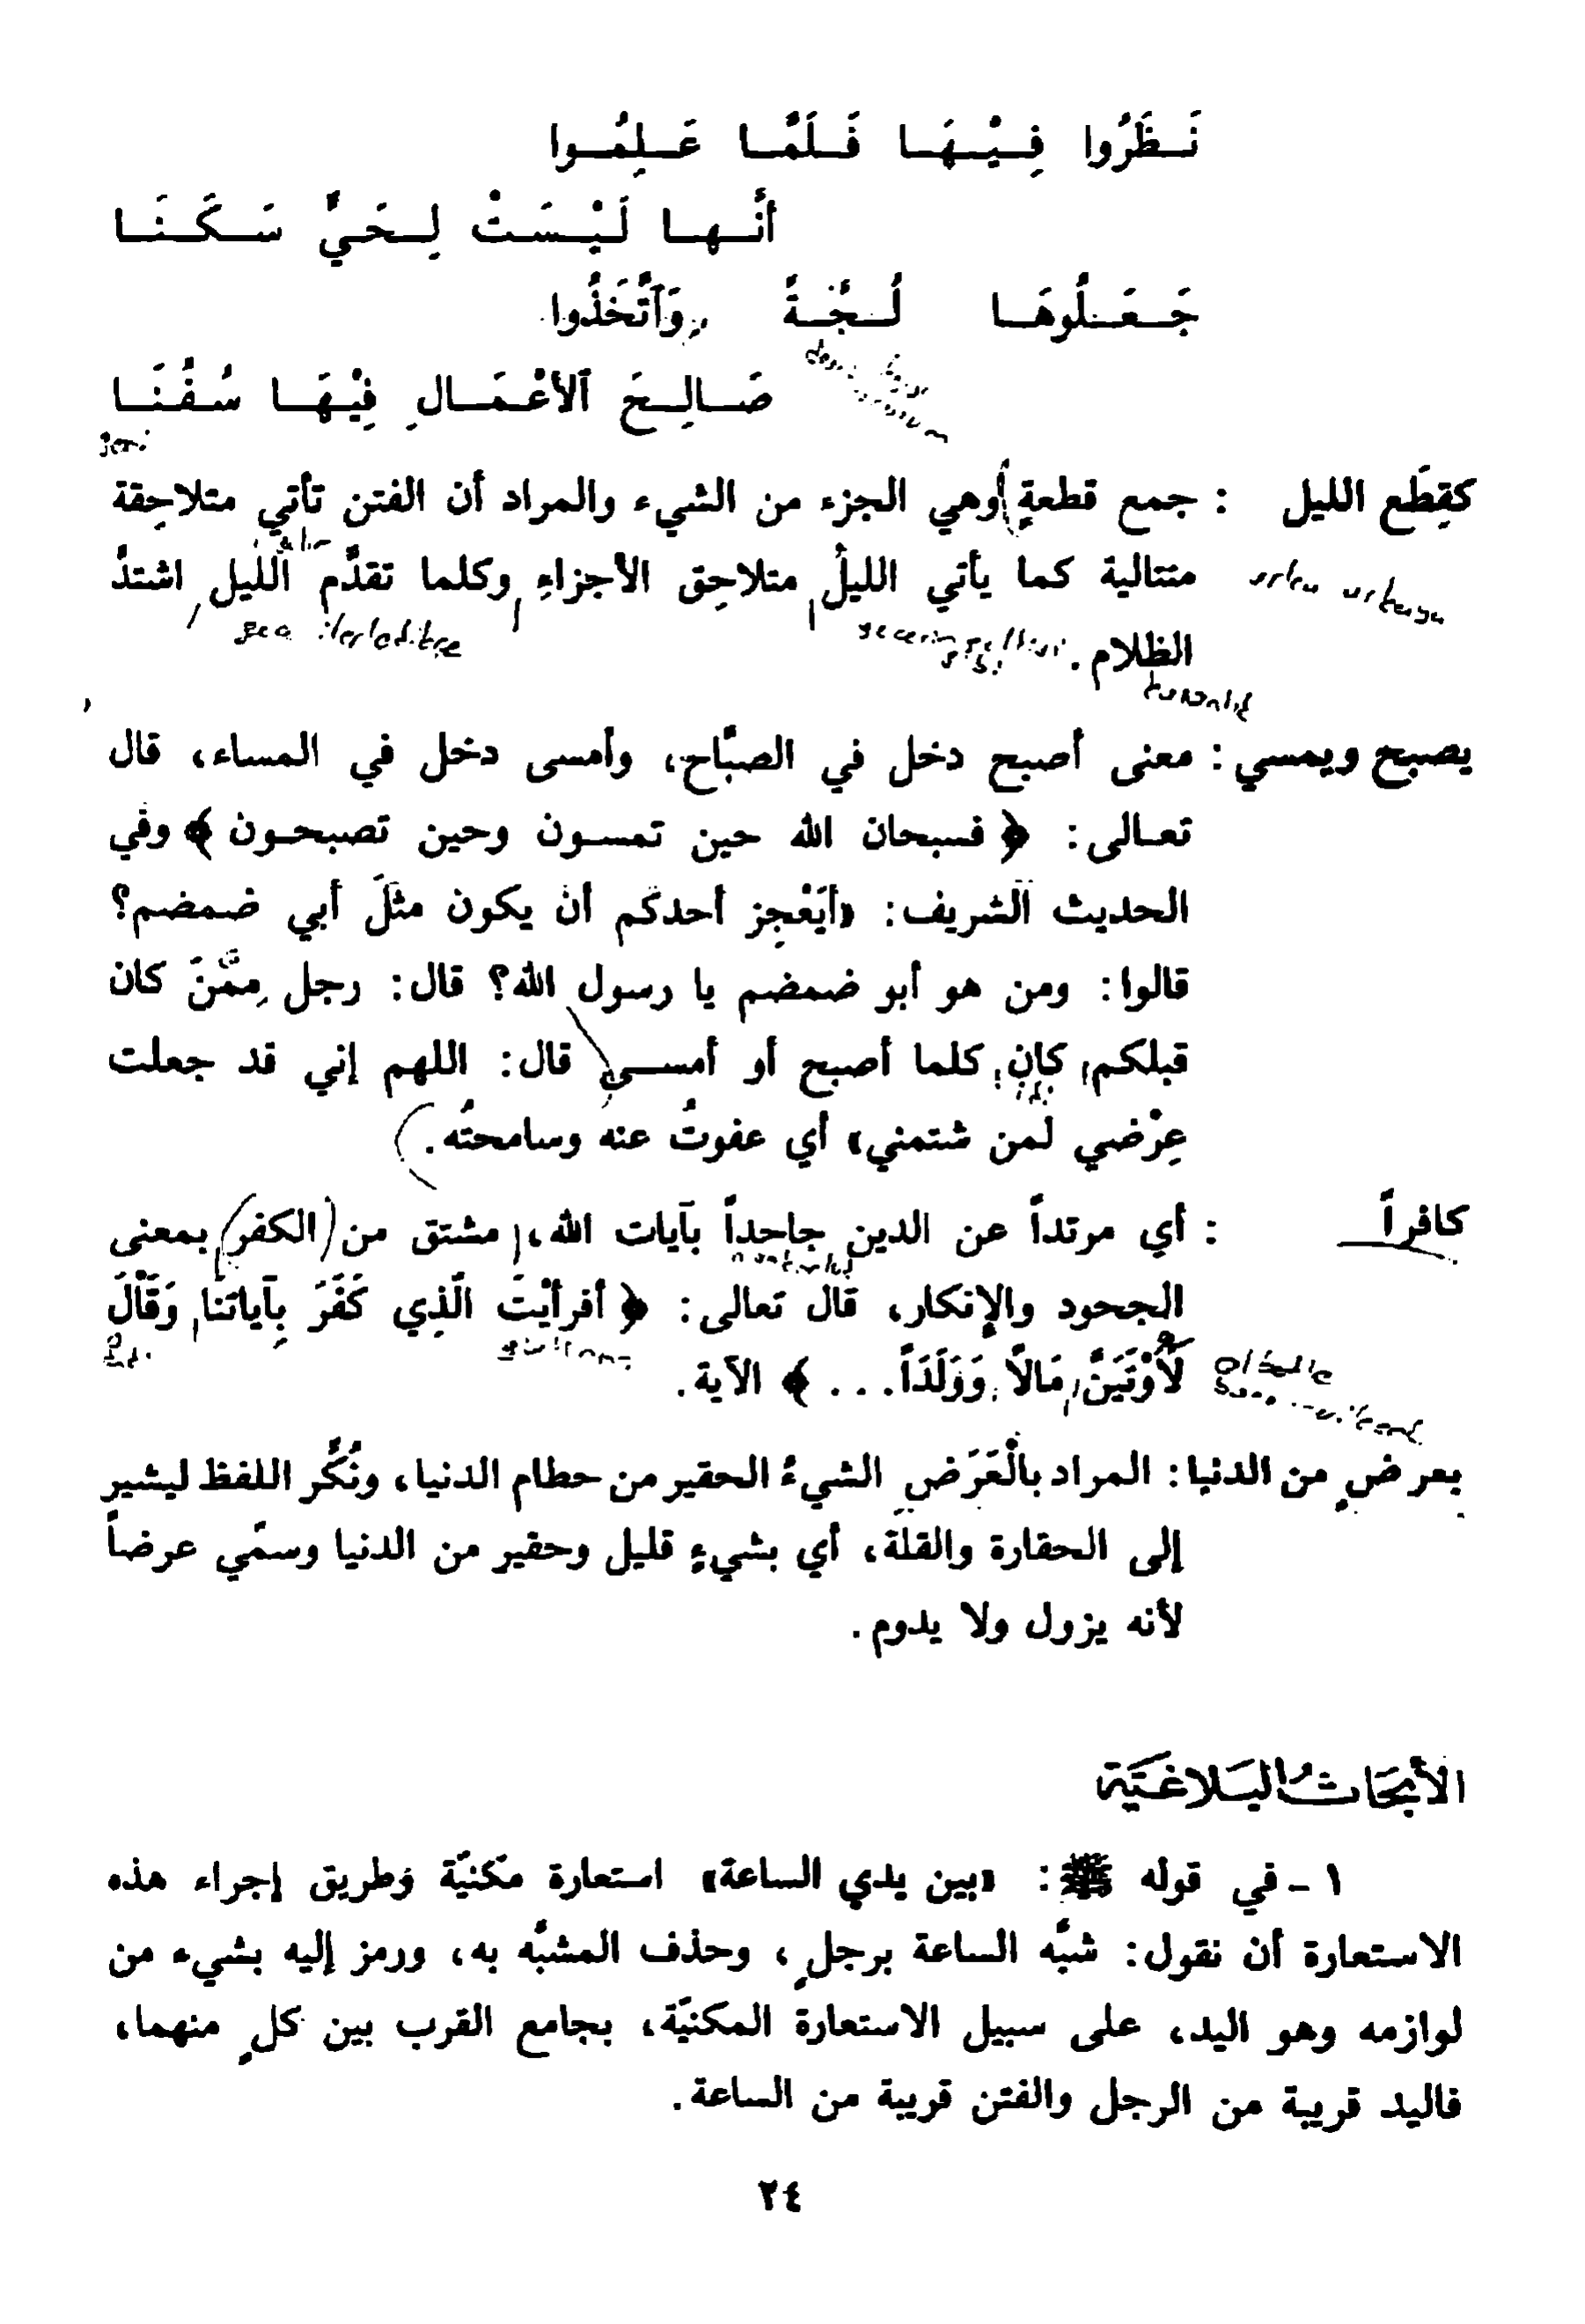 نَظَرُوا فِيْهَا فَلَمَّا عَلِمُوا
أنَّها لَيْسَتْ لِحَيٍّ سَكَنَا
جَعَلُوهَا لُجَّةً وَآتَّخَذُوا
صَالِحَ آلأعْمَالِ فِيْهَا سُفُنَا
كقِطَع الليل : جمع قطعةٍ وهي الجزء من الشيء والمراد أن الفتن تأتي متلاحِقة
متتالية كما يأتي الليلُ متلاحِق الأجزاءِ وكلما تقدَّم الليل اشتدَّ
gece ilerledikçe
الظلام.
يصبح ويمسي : معنى أصبح دخل في الصبَّاح، وأمسى دخل في المساء، قال
تعالى: ﴿ فسبحان الله حين تمسون وحين تصبحون ﴾ وفي
الحديث الشريف: «أيَعْجِز أحدكم أن يكون مثلَ أبي ضمضم؟
قالوا: ومن هو أبو ضمضم يا رسول الله؟ قال: رجل مِمَّنْ كان
قبلكم، كان كلما أصبح أو أمسى قال: اللهم إني قد جعلت
عِرْضي لمن شتمني» أي عفوتُ عنه وسامحتُه.
كافراً : أي مرتداً عن الدين جاحداً بآيات الله، مشتق من (الكفر) بمعنى
الجحود والإنكار، قال تعالى: ﴿ أفرأيْتَ الَّذِي كَفَرَ بِآياتنَا وَقَالَ
لَأُوْتَيَنَّ مَالاً وَوَلَدَاً... ﴾ الآية.
بعرضٍ من الدنيا : المراد بالْعَرَضِ الشيءُ الحقير من حطام الدنيا، ونُكِّر اللفظ ليشير
إلى الحقارة والقلة، أي بشيءٍ قليل وحقير من الدنيا وسمّي عرضاً
لأنه يزول ولا يدوم.
الأبحَاثُ البَلاغيَّة
١ - في قوله ﷺ: «بين يدي الساعة» استعارة مكنيّة وطريق إجراء هذه
الاستعارة أن نقول: شبَّه الساعة برجلٍ، وحذف المشبَّه به، ورمز إليه بشيء من
لوازمه وهو اليد، على سبيل الاستعارة المكنيّة، بجامع القرب بين كلٍ منهما،
فاليد قريبة من الرجل والفتن قريبة من الساعة.
٢٤